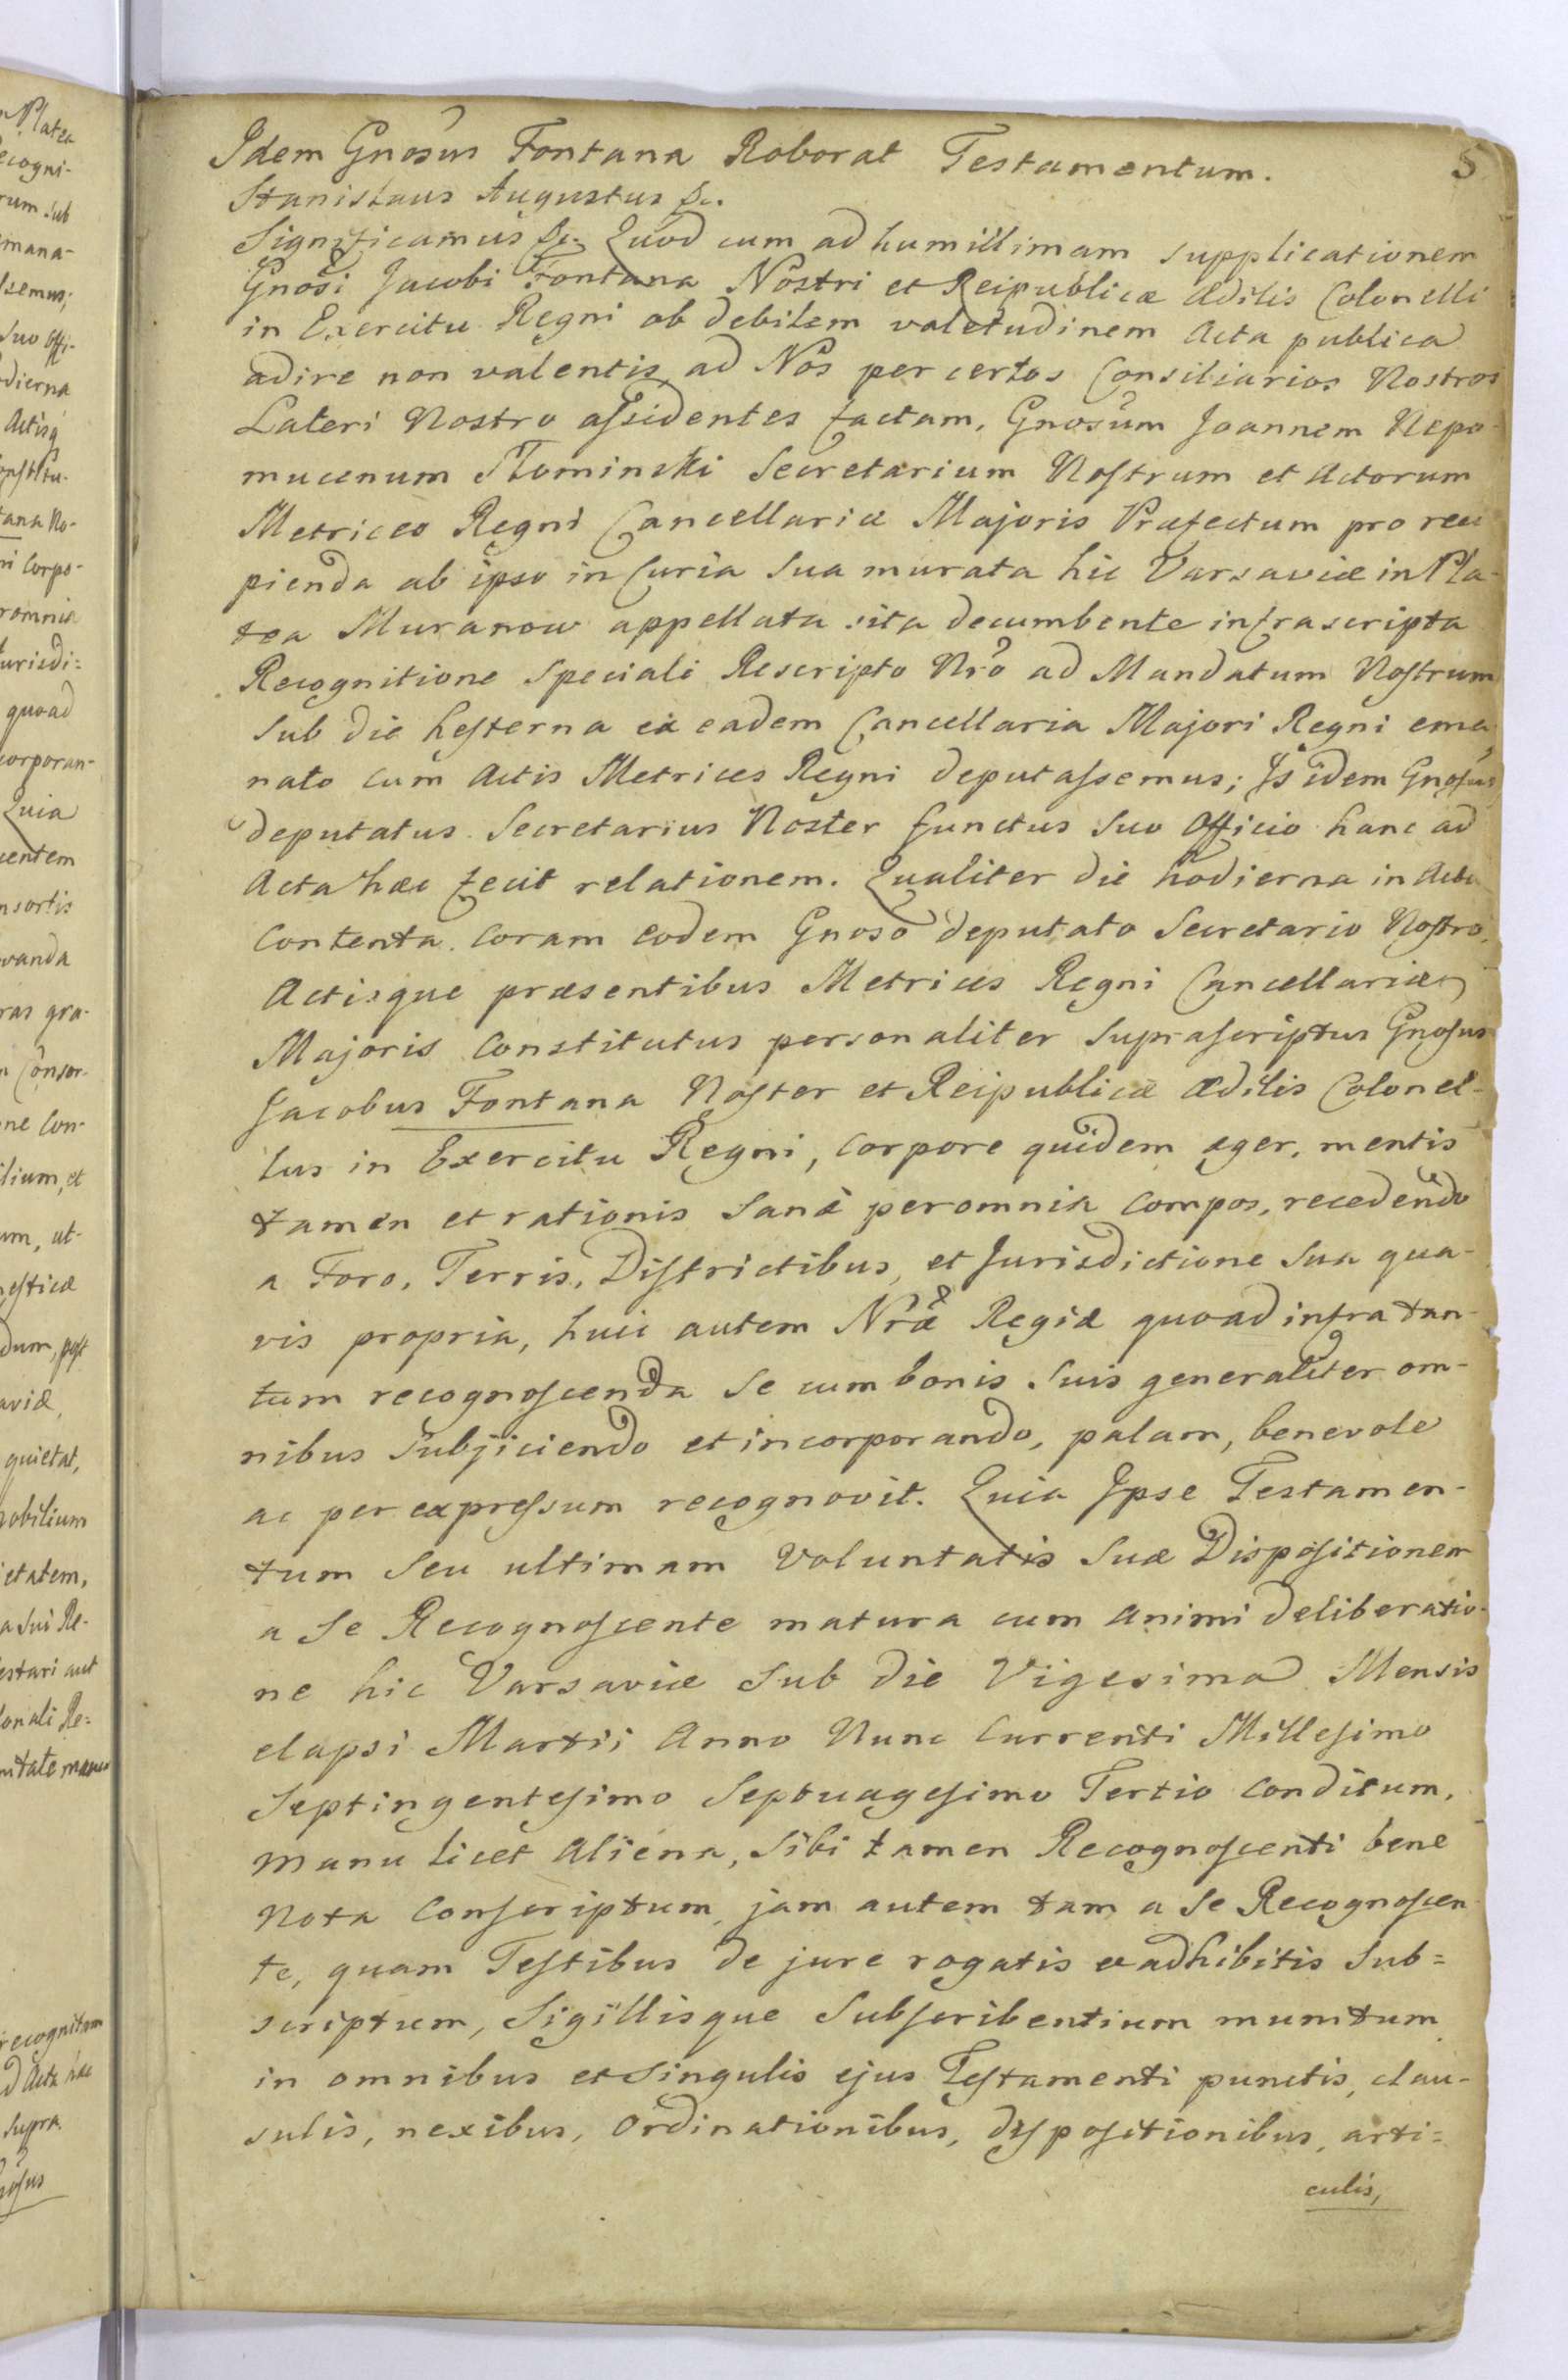 Platea
ecogni-
rum sub
mana-
ssemus;
suo offi-
dierna
Actisq
onstitu-
tana No-
ni Corpo-
romnia
Jurisdi=
quoad
corporan-
Quia
centem
nsortis
vanda
ras gra-
n Consor-
ne Con-
ilium, et
um, ut-
esticæ
dum, post
aviæ,
quietat,
nobilium
ietatem,
a sui Re-
estari aut
onali Re=
recognitam
d Acta hæc
supra.
nosus
5
Idem Gnosus Fontana Roborat Testamentum.
Stanislaus Augustus &c.
Significamus &c. Quod cum ad humillimam supplicationem
Gnosi Jacobi Fontana Nostri et Reipublicæ Ædilis Colonelli
in Exercitu Regni ob debilem valetudinem Acta publica
adire non valentis, ad Nos per certos Consiliarios Nostros
Lateri Nostro assidentes factam, Gnosum Joannem Nepo-
mucenum Słominski Secretarium Nostrum et Actorum
Metrices Regni Cancellariæ Majoris Præfectum pro reci
pienda ab ipso in Curia sua murata hic Varsaviæ in Pla-
tea Muranow appellata sita decumbente infrascripta
Recognitione speciali Rescripto Nro ad Mandatum Nostrum
sub die hesterna ex eadem Cancellaria Majori Regni ema
nato cum Actis Metrices Regni deputassemus; Is idem Gnosus
deputatus Secretarius Noster functus suo Officio hanc ad
Acta hæc fecit relationem. Qualiter die hodierna in Actu
Contenta. Coram eodem Gnoso deputato Secretario Nostro,
Actisque præsentibus Metrices Regni Cancellariæ
Majoris Constitutus personaliter suprascriptus Gnosus
Jacobus Fontana Noster et Reipublicæ Ædilis Colonel-
lus in Exercitu Regni, Corpore quidem æger, mentis
tamen et rationis sanæ peromnia Compos, recedendo
a Foro, Terris, Districtibus, et Jurisdictione sua qua-
vis propria, huic autem Nræ Regiæ quoad infra tan-
tum recognoscenda se cum bonis suis generaliter om-
nibus subjiciendo et incorporando, palam, benevole
ac per expressum recognovit. Quia Ipse Testamen-
tum seu ultimam voluntatis suæ Dispositionem
a se Recognoscente matura cum animi deliberatio-
ne hic Varsaviæ sub die Vigesima Mensis
elapsi Martii Anno Nunc Currenti Millesimo
Septingentesimo Septuagesimo Tertio Conditum,
manu licet Aliena, sibi tamen Recognoscenti bene
Nota Conscriptum, jam autem tam a se Recognoscen
te, quam Testibus de jure rogatis et adhibitis Sub=
scriptum, Sigillisque Subscribentium munitum
in omnibus et singulis ejus Testamenti punctis, clau-
sulis, nexibus, Ordinationibus, dispositionibus, arti=
culis,